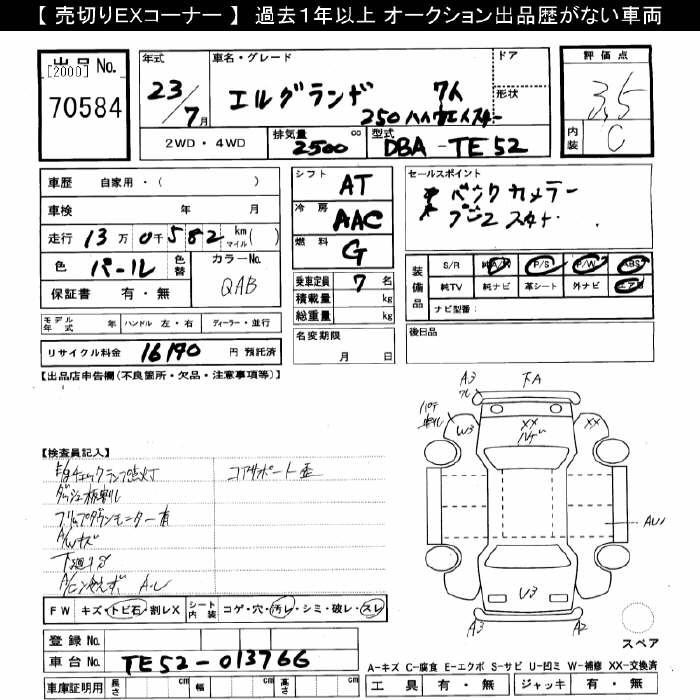 【 売切りEXコーナー 】 過去1年以上 オークション出品歴がない車両
出品 No.
[2000]
70584
年式
23/7月
車名・グレード
エルグランド 7人
250 ハイウェイスター
ドア
形状
2WD・4WD
排気量
2500 cc
型式
DBA-TE52
評価点
3.5
内装
C
車歴 自家用・( )
車検 年 月
走行 13万0千582 km マイル( )
色 パール 色替
カラーNo. QAB
保証書 有・無
モデル年式 年 ハンドル 左・右 ディーラー・並行
リサイクル料金 16190 円 預託済
シフト AT
冷房 AAC
燃料 G
乗車定員 7 名
積載量 kg
総重量 kg
名変期限
月 日
セールスポイント
* バックカメラー
* プッシュスタート
装備品
S/R 純A/W P/S P/W ABS
純TV 純ナビ 革シート 外ナビ エアB
ナビ型番:
後日品
【出品店申告欄(不良箇所・欠品・注意事項等)】
【検査員記入】
E/gチェックランプ点灯
コアサポート歪
ダッシュ板割し
フリップダウンモニター有
A/Wキズ
下廻りS
A/C冷えず、
FW キズ・トビ石・割レX
シート内装 コゲ・穴・汚レ・シミ・破レ・スレ
登録 No.
車台 No. TE52-013766
車庫証明用 長さ cm 幅 cm 高さ cm
A3
下A
W3
XX
XX
AU1
U3
A3
A2
スペア
A-キズ C-腐食 E-エクボ S-サビ U-凹ミ W-補修 XX-交換済
工具 有・無 ジャッキ 有・無